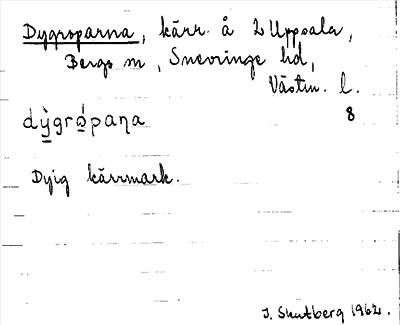 Dygroparna, kärr å L Uppsala,
Bergs sn, Snevringe hd,
Västm. l.
dỳ̱grò̱́paṇa 8
Dyig kärrmark.
J. Skutberg 1962.